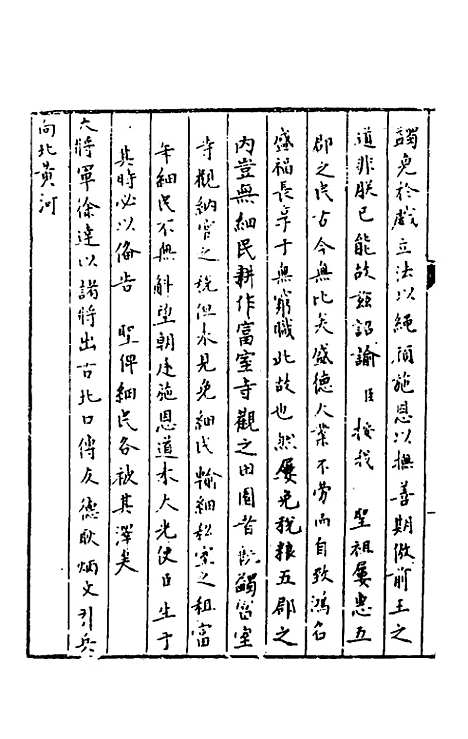 蠲免於戲立法以繩頑施恩以撫善期倣前王之
道非朕已能故玆詔諭 臣按我 聖祖屢惠五
郡之民古今無比矣盛德大業不勞而自致鴻名
盛福長享于無窮職此故也然屢免稅粮五郡之
內豈無細民耕作富室寺觀之田園者旣蠲富室
寺觀納官之稅但未見免細民輸細於富之租富
年細民不無觖望朝廷施恩道未大光使臣生于
其時必以偹告 聖俾細民各被其澤矣
大將軍徐達以諸將出古北口傅友德耿炳文引兵
向北黃河